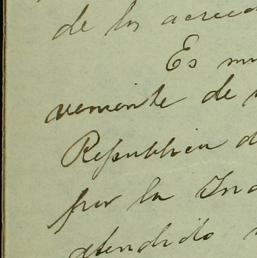 de los acreed
Es mu
vemente de
Republica d
por la Ind
atendido